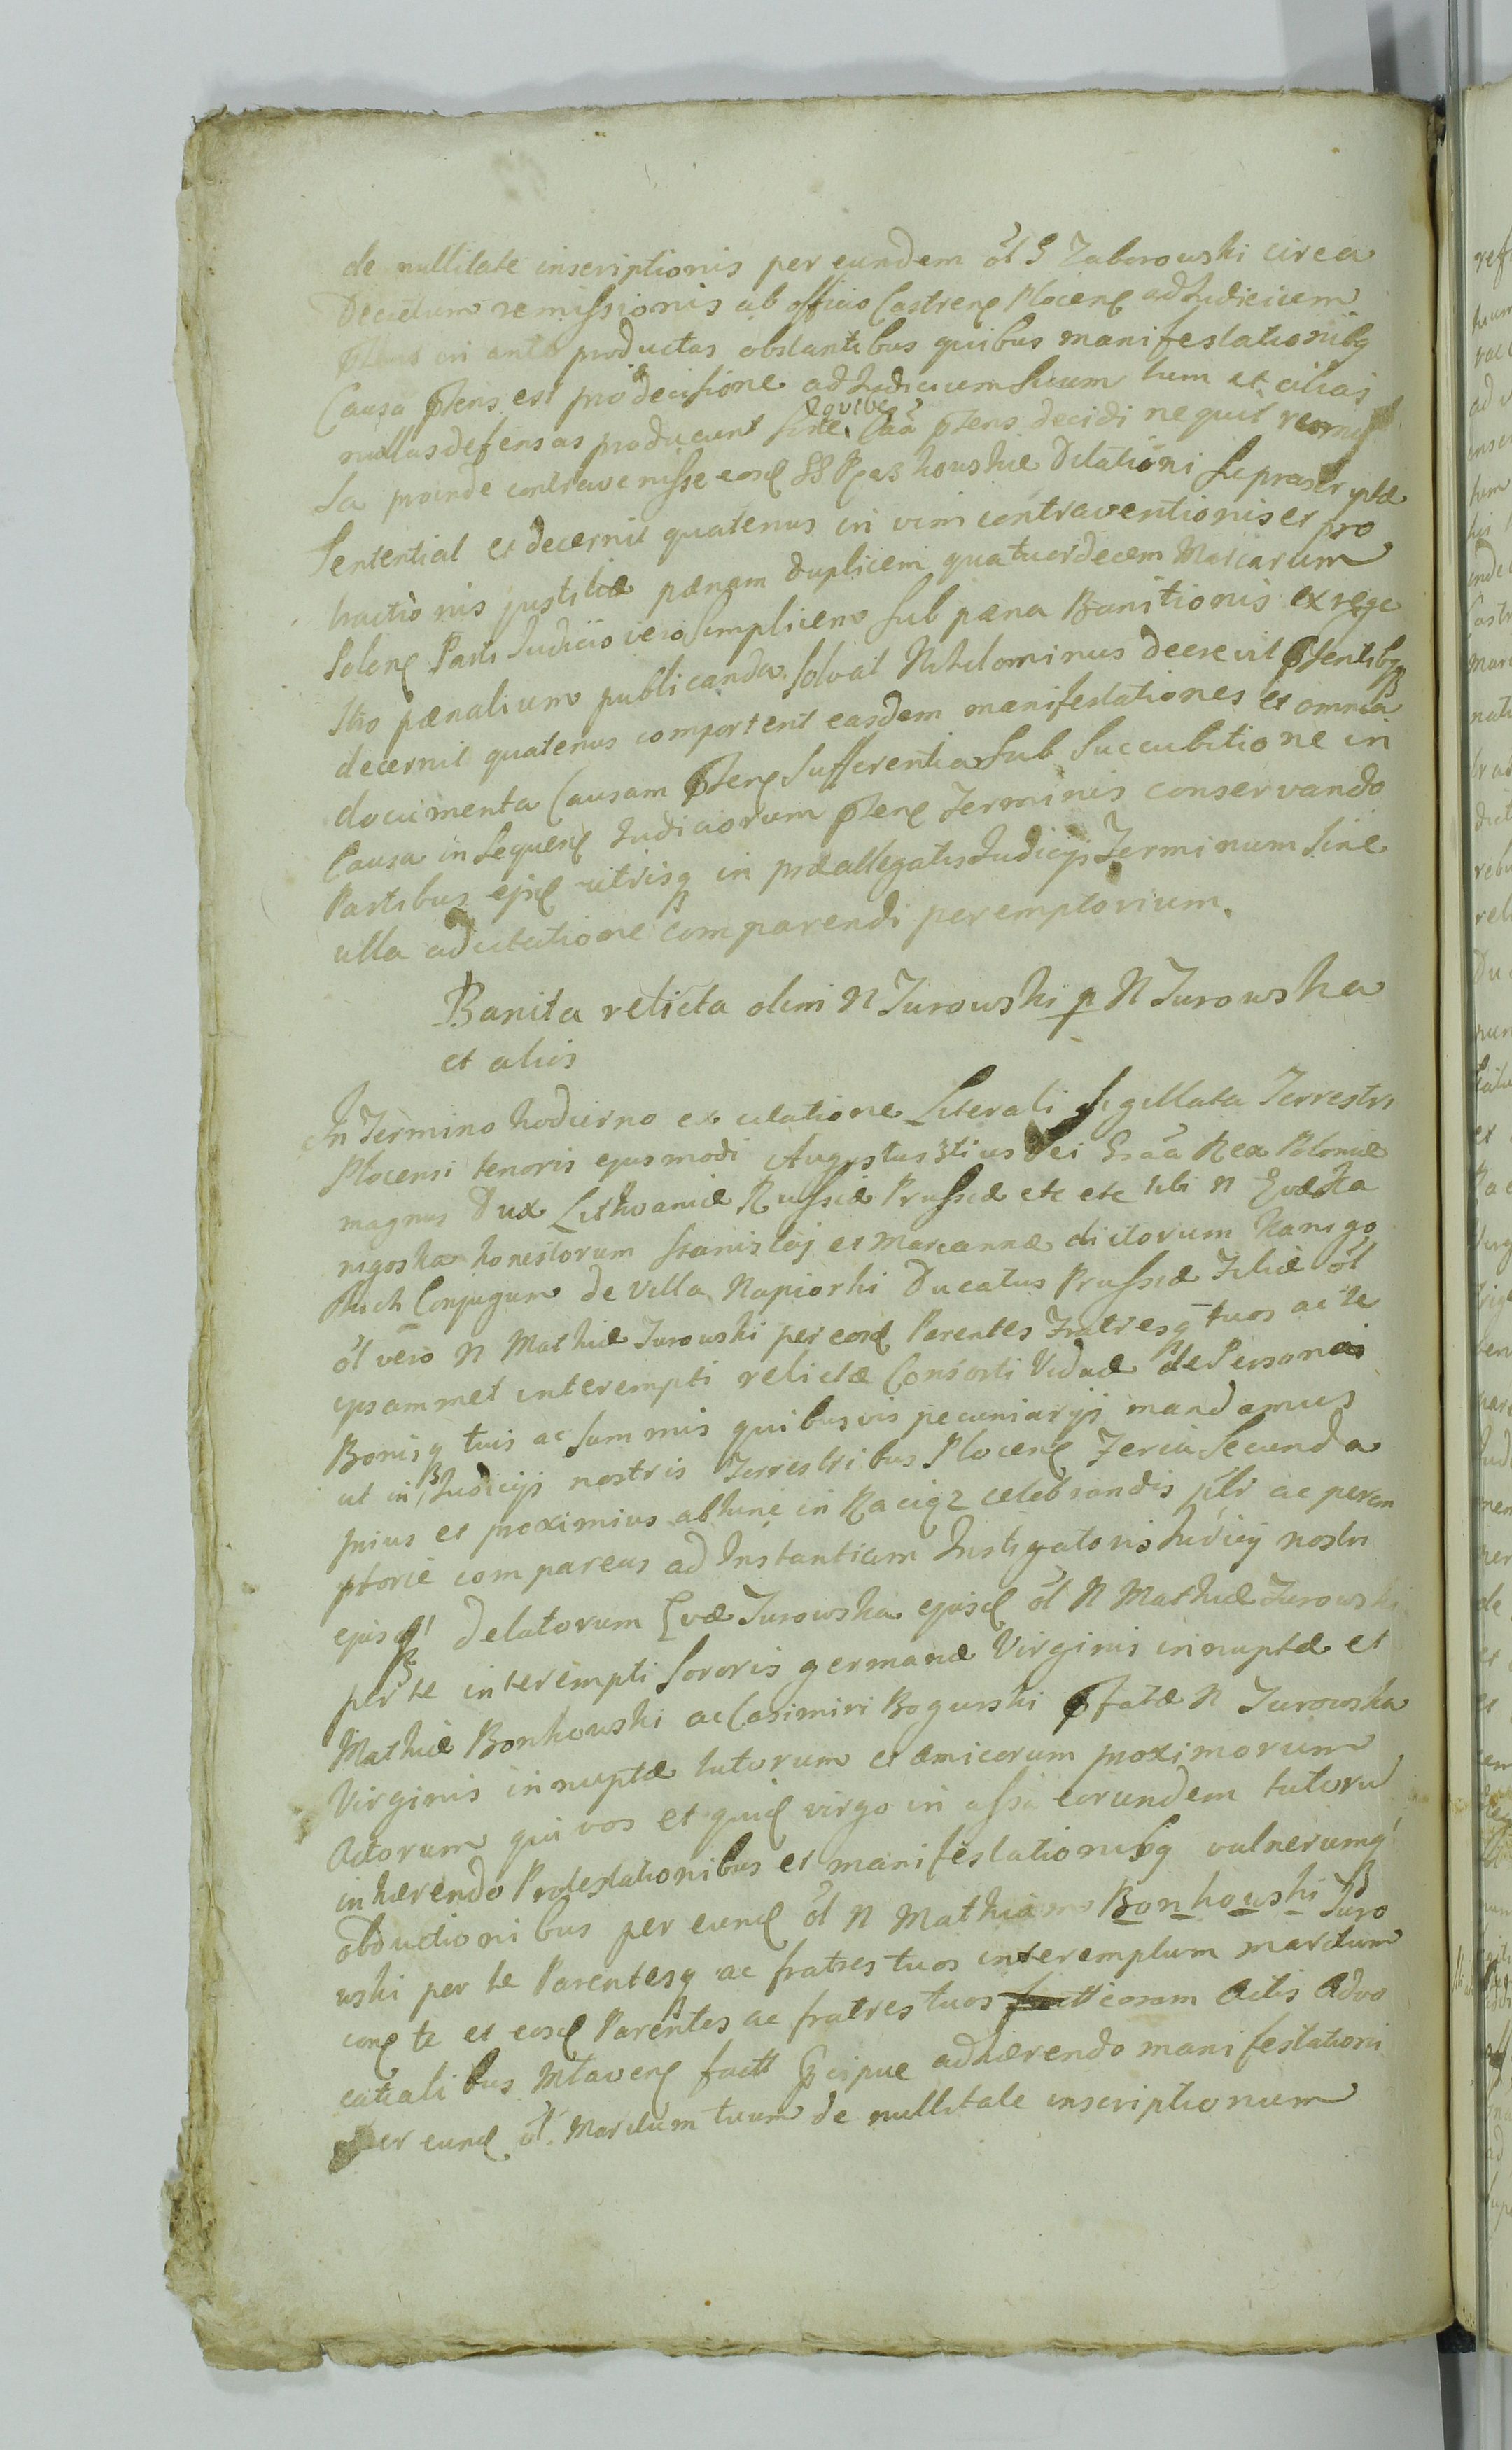 de nullitate inscriptionis per eundem ol G Zaborowski circa
Decretum remissionis ab officio Castrenς Plocenς ad Judicium
pñs in ante productas obstantibus quibus manifestationibg
Causa pñens est pro decisione ad Judicium suum tum et alias
nullas defensas producunt sine quibg Caa pñens decidi nequit remis
sa proinde contravenisse eosd SS Rzazkowskie Dilationi suprascriptæ
Sententiat et decernit quatenus in vim contraventionis et pro
tractionis justitiæ pænam duplicem quatuordecem Marcarum
Polonς Parti Judicio vero simplicem sub pæna Banitionis ex rege
stro pænalium publicanda solvat Nihilominus decrevit pñentibg
decernit quatenus comportent easdem manifestationes et omnia
documenta Causam pñenς sufferentia sub succubitione in
Causa in sequenς Judiciorum pñenς Terminis conservando
Partibus ejsd utrisq in præallegatis Judicijs Terminum sine
ulla adcitatione comparendi peremptorium.
Banita relicta olim N Turowski p N Turowska
et alios
In Termino hodierno ex citatione Literali sigillata Terrestri
Plocensi tenoris ejusmodi Augustus 3tius Dei Graa Rex Poloniæ
magnus Dux Lithvaniæ Russiæ Prussiæ etc etc tibi N Evæ Ka
nigoska honestorum Stanislaj et Mariannæ dictorum Kanigo
skich Conjugum de Villa Napiorki Ducatus Prussiæ Filiæ ol
ol vero N Mathiæ Turowski per eosd Parentes Fratresq tuos ac te
ipsammet interempti relictæ Consorti Viduæ de Personis
Bonisq tuis ac summis quibusvis pecuniarijs mandamus
ut in Judicijs nostris Terrestribus Plocenς Feria Secunda
prius et proximius abhinc in Raciąz celebrandis plr ac perem
ptorie compareas ad Instantiam Instigatoris Judicij nostri
ejusq Delatorum Evæ Turowska ejusd ol N Mathiæ Turowski
per te interempti Sororis germanæ Virginis innuptæ et
Mathiæ Bonkowski ac Casimiri Bogurski pfatæ N Turowska
Virginis innuptæ tutorum et amicorum proximorum
Actorum qui vos et quid virgo in assa eorundem tutoru
inhærendo Protestationibus et manifestationibg vulnerumq
obductionibus per eund ol N Mathiam Bonkowski Turo
wski per te Parentesq ac fratres tuos interemptum maritum
conς te et eosd Parentes ac fratres tuos coram Actis Advo
catialibus Mlavenς fact pcipue adhærendo manifestationi
per eund ol Maritum tuum de nullitate inscriptionum